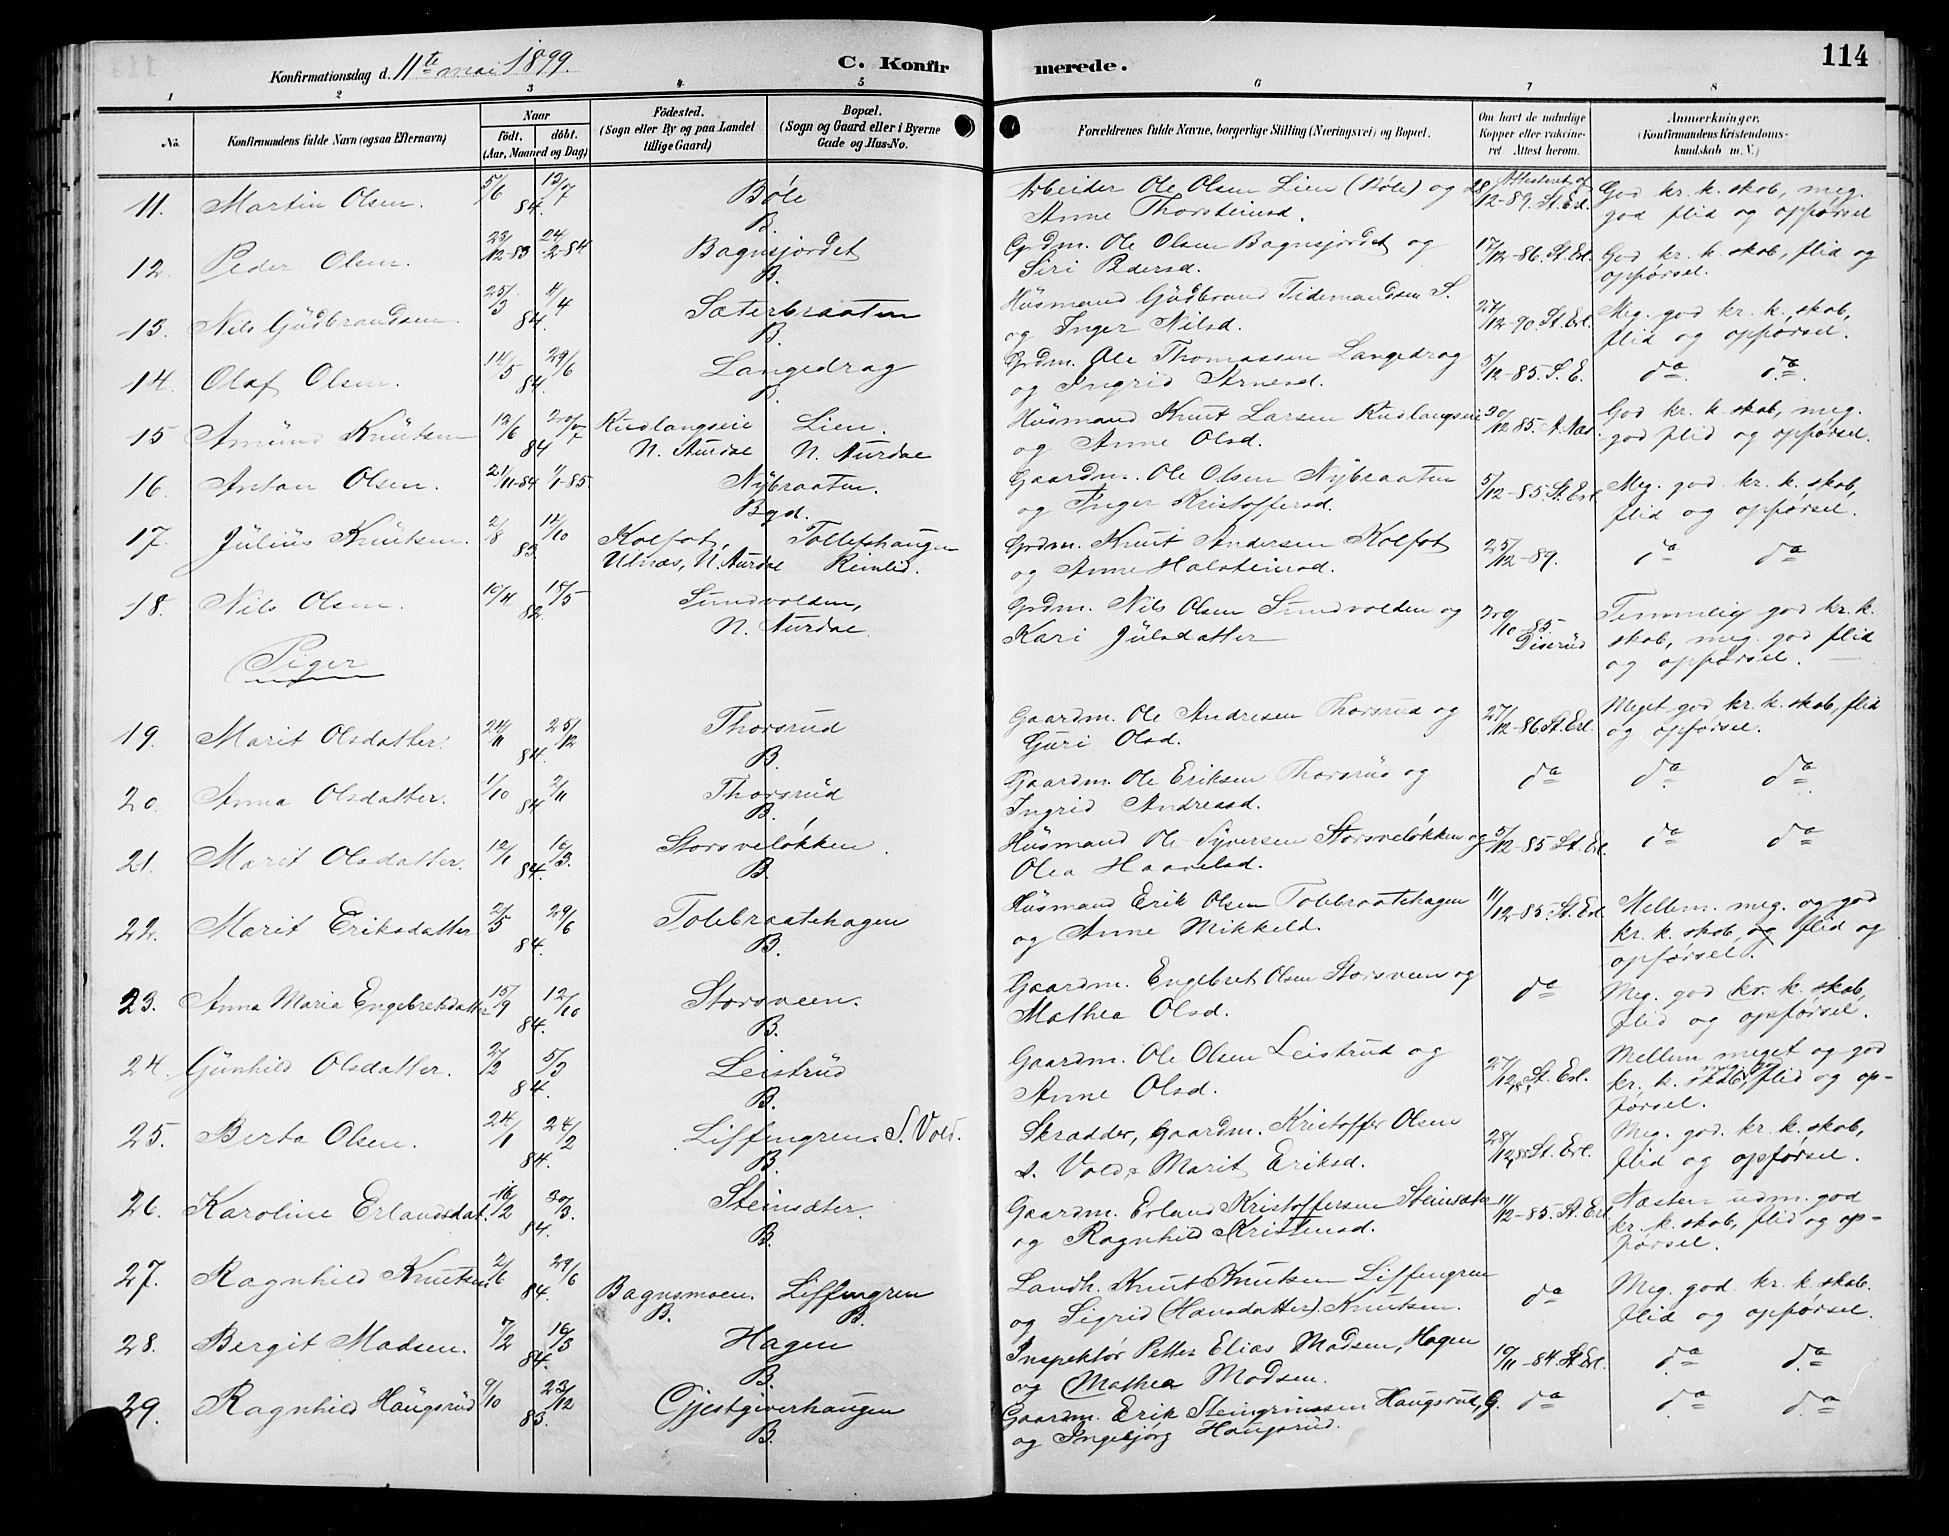 114
Konfirmationsdag d. 11te mai 1899.
C. Konfirmerede.
1 2 3 4 5 6 7 8
No. Konfirmandens fulde Navn (ogsaa Efternavn)
Naar födt. döbt. (Aar, Maaned og Dag)
Födested. (Sogn eller By og paa Landet tillige Gaard)
Bopæl. (Sogn og Gaard eller i Byerne Gade og Hus-No.
Forældrenes fulde Navne, borgerlige Stilling (Næringsvei) og Bopæl.
Om havt de naturlige Kopper eller vakcineret Attest herom.
Anmerkninger. (Konfirmandens Kristendomskundskab m. V.)
11. Martin Olsen. 5/6 84. 13/7 Böle B. Arbeider Ole Olsen Lien (Böle) og Anne Thorsteinsd. Attesteret af 28/12-89. St. Erl. God kr. k. skab, meg. god flid og opførsel
12. Peder Olsen. 23/12-83 24/2-84 Bagnsjordet B. Grdm. Ole Olsen Bagnsjordet og Siri Pedersd. 17/12-86. St. Erl. God kr. k. skab, flid og opførsel.
13. Nils Gudbrandsen. 25/3 84. 4/4 Sæterbraaten B. Husmand Gudbrand Tidemandsen S. og Inger Nilsd. 27/12-90. St. Erl. Meg. god kr. k. skab, flid og opførsel.
14. Olaf Olsen. 14/5 84. 29/6 Langedrag B. Grdm. Ole Thomassen Langedrag og Ingrid Arnesd. 5/12-85. S. E. da. da.
15 Amund Knutsen 12/6 84 20/7 Rudlangseie N. Aurdal Lien. N. Aurdal Husmand Knut Larsen Rudlangseie og Anne Olsd. 30/12 85. A. Næs. God kr. k. skab, meg. god flid og opførsel.
16 Anton Olsen. 21/11-84 1/1-85. Nybraaten. Bgd. Gaardm. Ole Olsen Nybraaten og Inger Kristoffersd. 5/12-85 St. Erl. Meg. god kr. k. skab, flid og opførsel.
17. Julius Knutsen. 2/8 83. 14/10 Kolfot, Ulnæs, N. Aurdal Tollefshaugen Reinlid. Grdm. Knut Andersen Kolfot og Anne Halsteinsd. 25/12-89. da da
18. Nils Olsen. 10/4 82. 18/5 Sundvolden, N. Aurdal. Grdm. Nils Olsen Sundvolden og Kari Julsdatter 29/10-85. Diserud Temmelig god kr. k. skab, meg. god flid og opførsel.
Piger
19. Marit Olsdatter. 24/11 84. 25/12 Thorsrud B. Gaardm. Ole Andresen Thorsrud og Guri Olsd. 27/12-86 St. Erl. Meget god kr. k. skab, flid og opførsel.
20. Anna Olsdatter. 1/10 84 2/11 Thorsrud B. Gaardm. Ole Eriksen Thorsrud og Ingrid Andreasd. da da da
21. Marit Olsdatter. 12/1 84. 16/3. Storsveløkken. B. Husmand Ole Syversen Storsveløkken og Olea Haavelsd. 5/12-85 St. Erl. da da
22. Marit Eriksdatter 2/5 84. 29/6 Tolebraatehagen B. Husmand Erik Olsen Tolebraatehagen og Anne Mikkelsd. 11/12-85. St. Erl. Mellem. meg. og god kr. k. skab, og flid og opførsel.
23. Anna Maria Engebretsdatter 15/9 84. 12/10 Storsveen. B. Gaardm. Engebret Olsen Storsveen og Mathea Olsd. da Meg. god kr. k. skab, flid og opførsel.
24. Gunhild Olsdatter. 2/2 84. 5/3 Leistrud B. Gaardm. Ole Olsen Leistrud og Anne Olsd. 27/12 St. Erl. Mellem meget og god kr. k. skab, meg. god flid og opførsel.
25. Berta Olsen. 24/1 84. 24/2 Liffengren. S. Vold. B. Skrædder, Gaardm. Kristoffer Olsen s. Vold & Marit Eriksd. 28/12 St. Erl. Meg. god. kr. k. skab, flid og opførsel.
26. Karoline Erlandsdat. 16/2 84. 30/3. Steinsæter. B. Gaardm. Erland Kristoffersen Steinsæter og Ragnhild Kristensd. 11/12-85. St. Erl Næsten udm. god kr. k. skab, flid og opførsel.
27. Ragnhild Knutsen. 2/6 84. 29/6 Bagnsmoen. B. Liffengren B. Landh. Knut Knutsen Liffengren og Sigrid (Hansdatter) Knutsen. da Meg. god kr. k. skab. flid og opførsel.
28. Bergit Madsen. 7/2 84. 16/3 Hagen B. Inspektør Petter Elias Madsen, Hagen og Mathea Madsen. 10/11-84 St. Erl. da da
29. Ragnhild Haugsrud 9/10 83. 23/12 Gjestgiverhaugen B. Gaardm. Erik Steingrimssen Haugsrud, G. og Ingebjørg Haugsrud. da da da